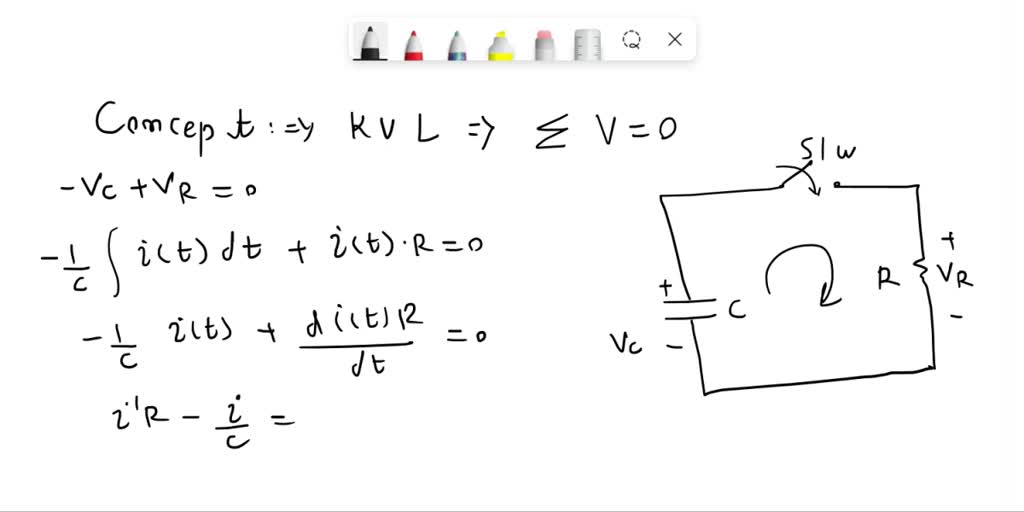 Concept :⇒ KVL ⇒ Σ V = 0
-Vc + VR = 0
-1/c ∫ i(t) dt + i(t)·R = 0
-1/c i(t) + d i(t) R / dt = 0
i'R - i/c =
S/w
+
R
VR
-
+
C
Vc
-